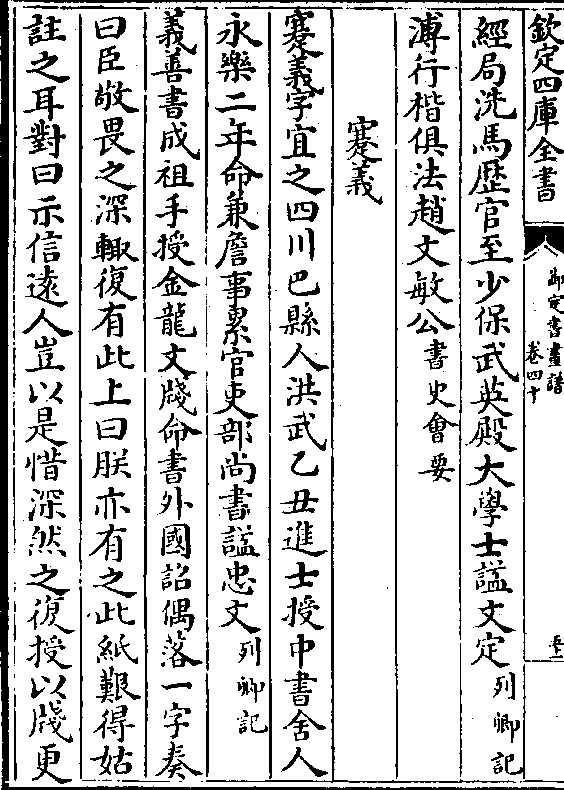 欽定四庫全書
御定書畫譜
卷四十
經局洗馬歷官至少保武英殿大學士諡文定列卿記
溥行楷俱法趙文敏公書史會要
蹇義
蹇義字宜之四川巴縣人洪武乙丑進士授中書舍人
永樂二年命兼詹事累官吏部尚書諡忠文列卿記
義善書成祖手授金龍文牋命書外國詔偶落一字奏
曰臣敬畏之深輙復有此上曰朕亦有之此紙艱得姑
註之耳對曰示信遠人豈以是惜深然之復授以牋更